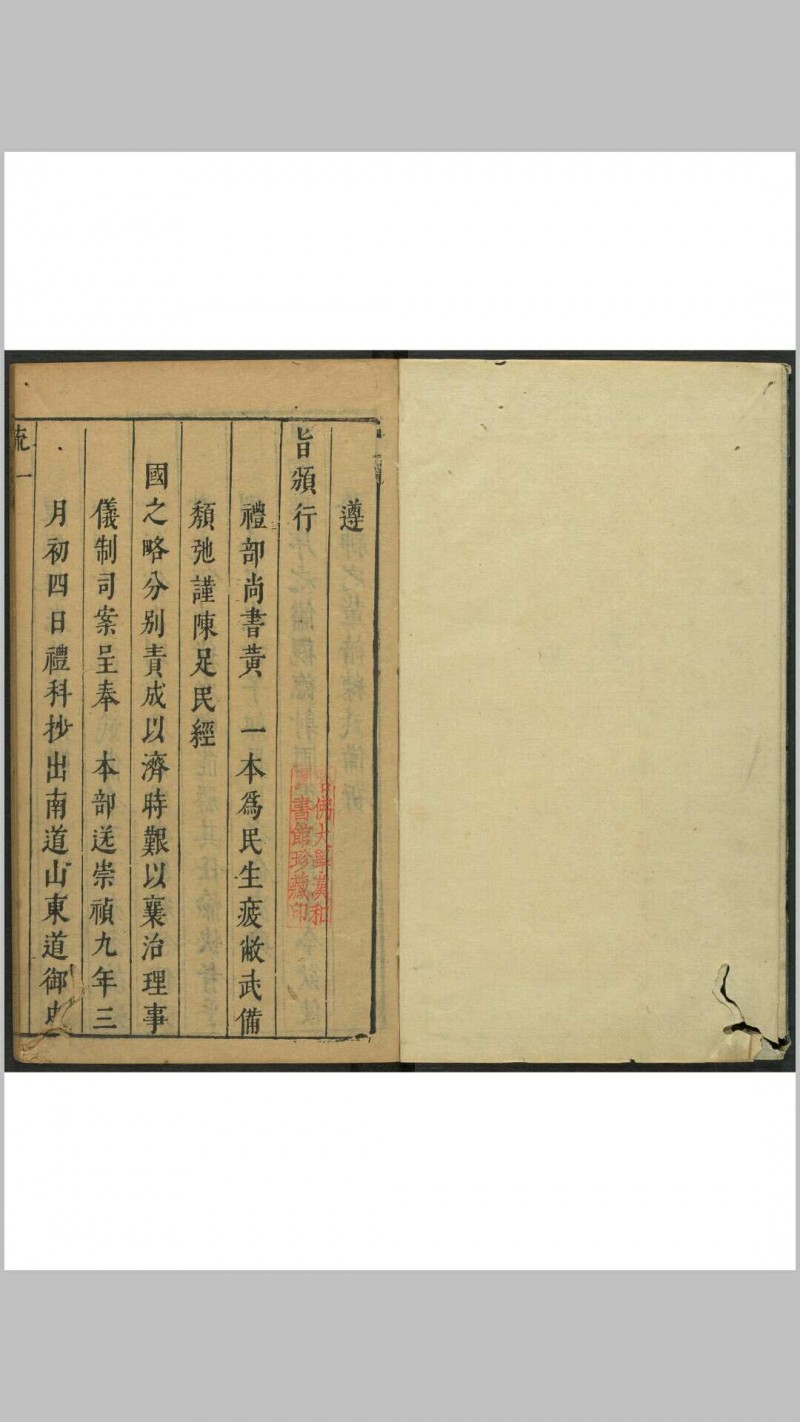 遵
旨頒行
禮部尚書黃 一本爲民生疲敝武備
頹弛謹陳足民經
國之略分別責成以濟時艱以襄治理事
儀制司案呈奉 本部送崇禎九年三
月初四日禮科抄出南道山東道御史
疏 一
哈佛大學漢和
圖書館珍藏印